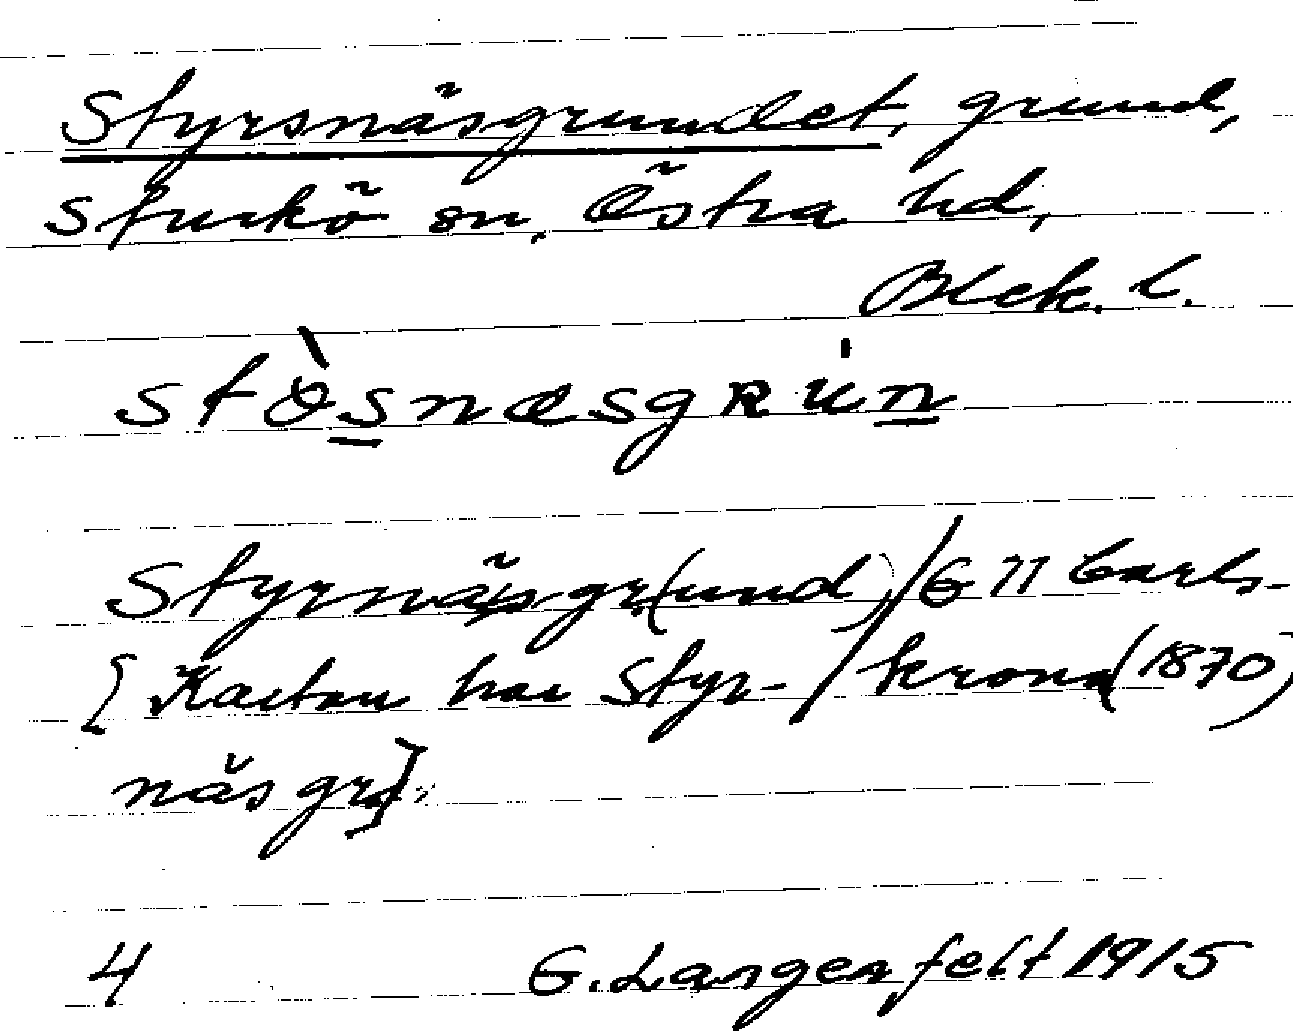 Styrsnäsgrundet, grund,
Sturkö sn, Östra hd,
Blek. l.
stø̀snæsgʀu̍n
Styrnäsgr(und) / G 77 Carls-
[Kartan har Styr- / krona (1870)
näsgr].
4 G. Langenfelt 1915